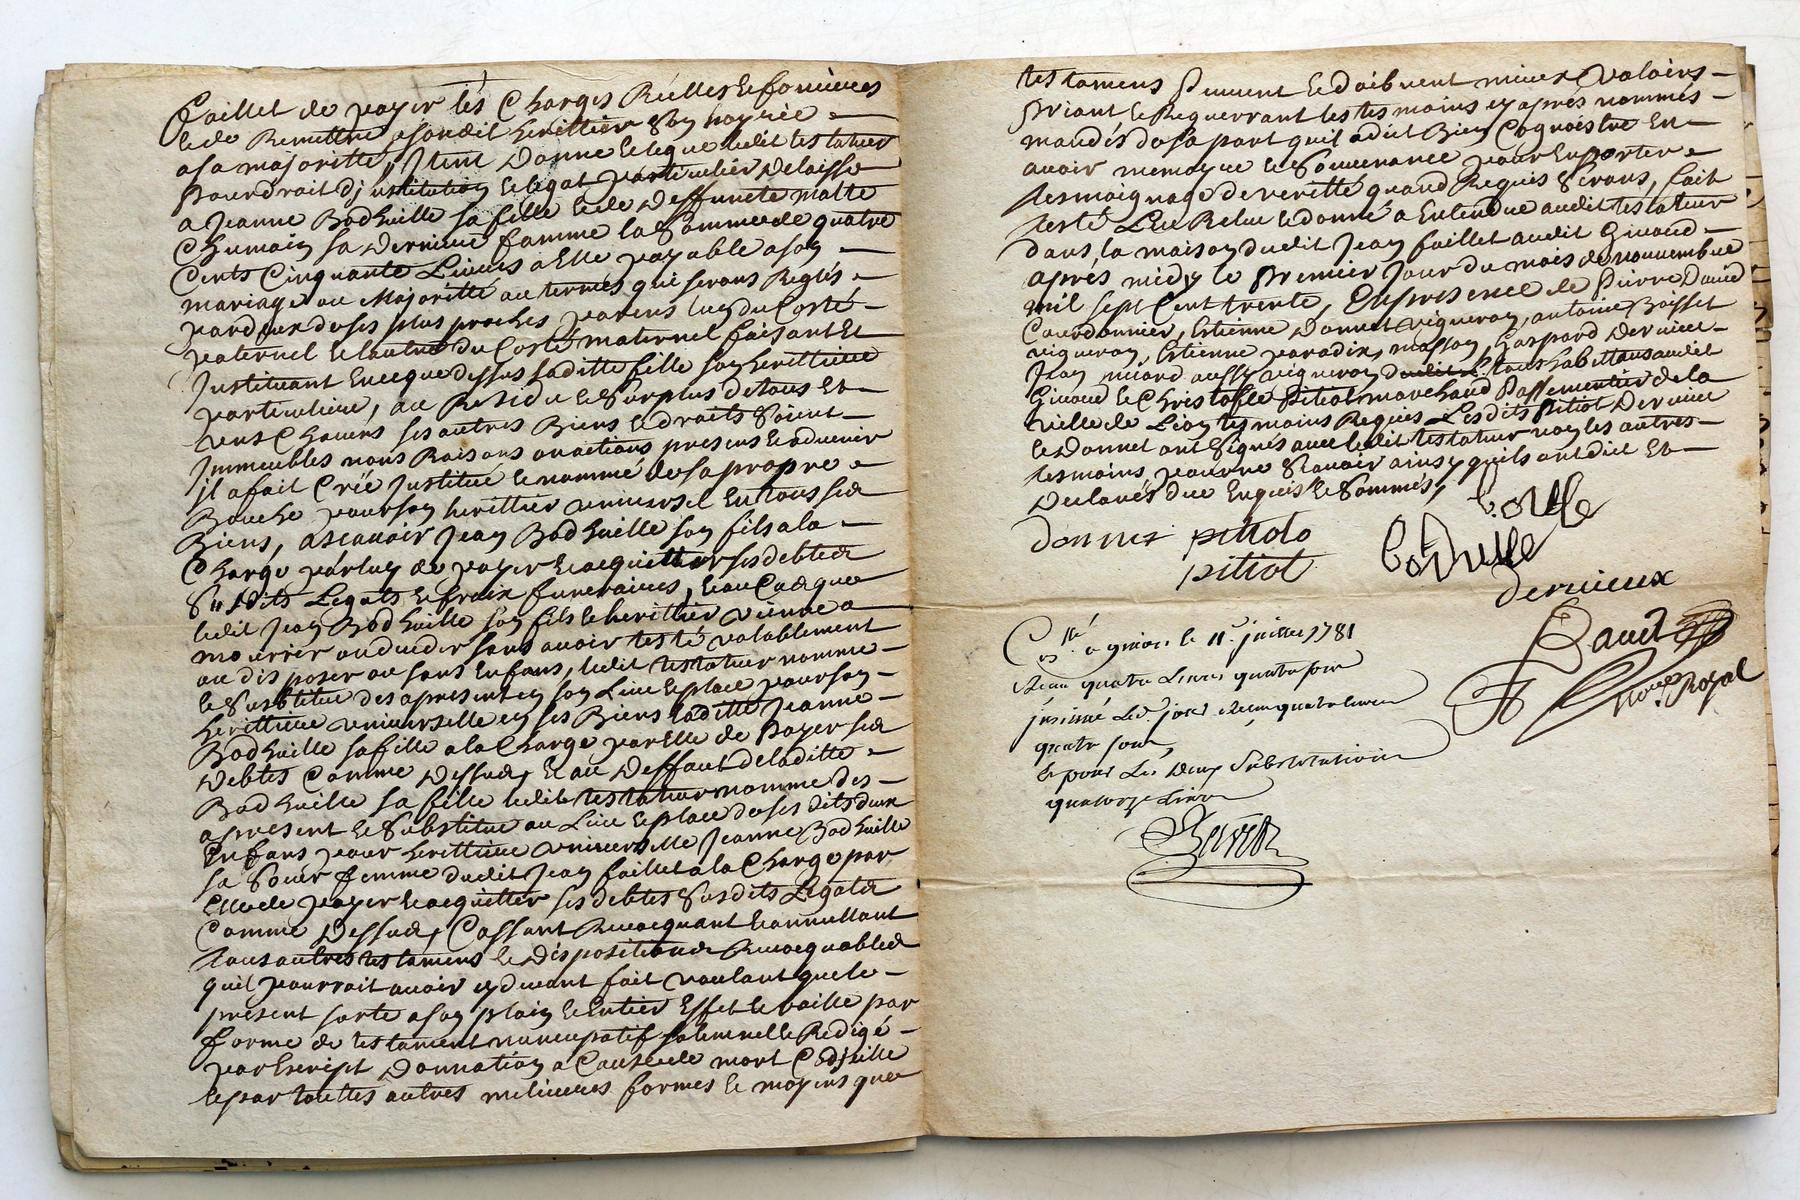 faillet de payer les Charges Réelles & foncieres
& de Remettre a sondit herittier son hoyrie
a sa majoritté, Item donne & legue ledit testateur
pour droit d'institution & legat particulier delaisse
a Jeanne Bodhuille sa fille & de deffuncte
Chumain sa derniere famme la somme de quatre
Cents Cinquante Livres a Elle payable a son
mariage ou Majoritté au termes qui seront Reglés
par deux de ses plus proches parens lun du Costé
paternel & lautre du Costé maternel faisant Et
Instituant En ce que dessus saditte fille son herittiere
particuliere, au Residu & surplus de tous Et
uns Chacuns ses autres Biens & droits soient
Immeubles noms Raisons ou actions presens & aduenir
Il a fait Créé Institué & nommé de sa propre
Bouche pour son herittier universel En tous ses
Biens, ascauoir Jean Bodhuille son fils a la
Charge par luy de payer & acquitter ses debtes
susdits Legats & fraix funeraires, & au Cas que
ledit Jean Bodhuille son fils & herittier vienne a
mourrir ou deceder sans auoir testé valablement
ou disposer ou sans Enfans, ledit testateur nomme
& substitue des apresent en son Lieu & place pour son
herittiere universelle en ses Biens laditte Jeanne
Bodhuille sa fille a la Charge par Elle de Payer ses
debtes Comme dessus, & au deffaut de laditte
Bodhuille sa fille ledit testateur nomme des
apresent & substitue au Lieu & place de ses dits deux
Enfans pour herittiere universelle Jeanne Bodhuille
sa soeur femme dudit Jean faillet a la Charge par
Elle de payer & acquitter ses debtes susdits Legats
Comme dessus, Cassant Reuocquant & annullant
tous autres testamens & dispositions Reuocquables
quil pourroit auoir cy deuant fait voulant que le
present sorte a son plain & Entier Effet & vaille par
forme de testament nuncupatif solemnelle Redigé
par Escript donnation a Cause de mort Codicille
& par touttes autres melieures formes & moyens que
testamens peuuent & doibuent mieux valoirs
priant & Requerrant les tesmoins cy aprés nommés
mandés de sa part quil a dict Bien Cognoistre En
auoir memoyre & souuenance pour En porter
tesmoignage de veritté quand Requis seront, fait
testé Leu Releu & donné a Entendre audit testateur
dans la maison dudit Jean faillet audit Giuord
aprés midy le premier Jour du mois de nouuembre
mil sept Cent trente, En presence de Pierre Dauid
Courdonnier, Estienne donnet vigneron, antoine Boisset
vigneron, Estienne paradix, masson, Gaspard deruieux
Jean micard aussy vigneron tous habittans audit
Giuord & Christofle Pitiot marchand Passementier de la
ville de Lion tesmoins Requis Lesdits Pitiot deruieux
& donnet ont signés auec ledit testateur non les autres
tesmoins pour ne scauoir ainsy quils ont dict Et
declarés due Enquis & sommés,
donnet pittolo Bodhuille
pitiot
deruieux
Dauid
no.re Royal
C.llé à givors le 11 juillet 1781
Reçu quatre Livres quatre sous
insinué Led. jour Reçu quatre livres
quatre sous
& pour Les deux Substitutions
quatorze Livres